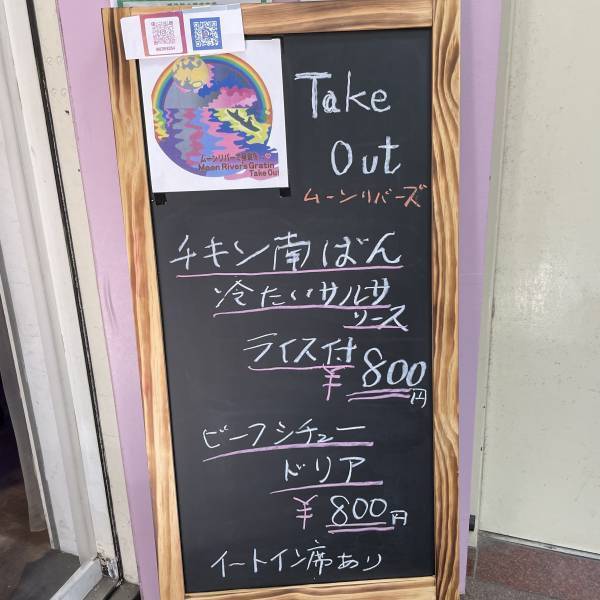 Take
Out
ムーンリバーズ
Moon River's Gratin
Take Out
チキン南ばん
冷たいサルサ
ソース
ライス付
¥800円
ビーフシチュー
ドリア
¥800円
イートイン席あり